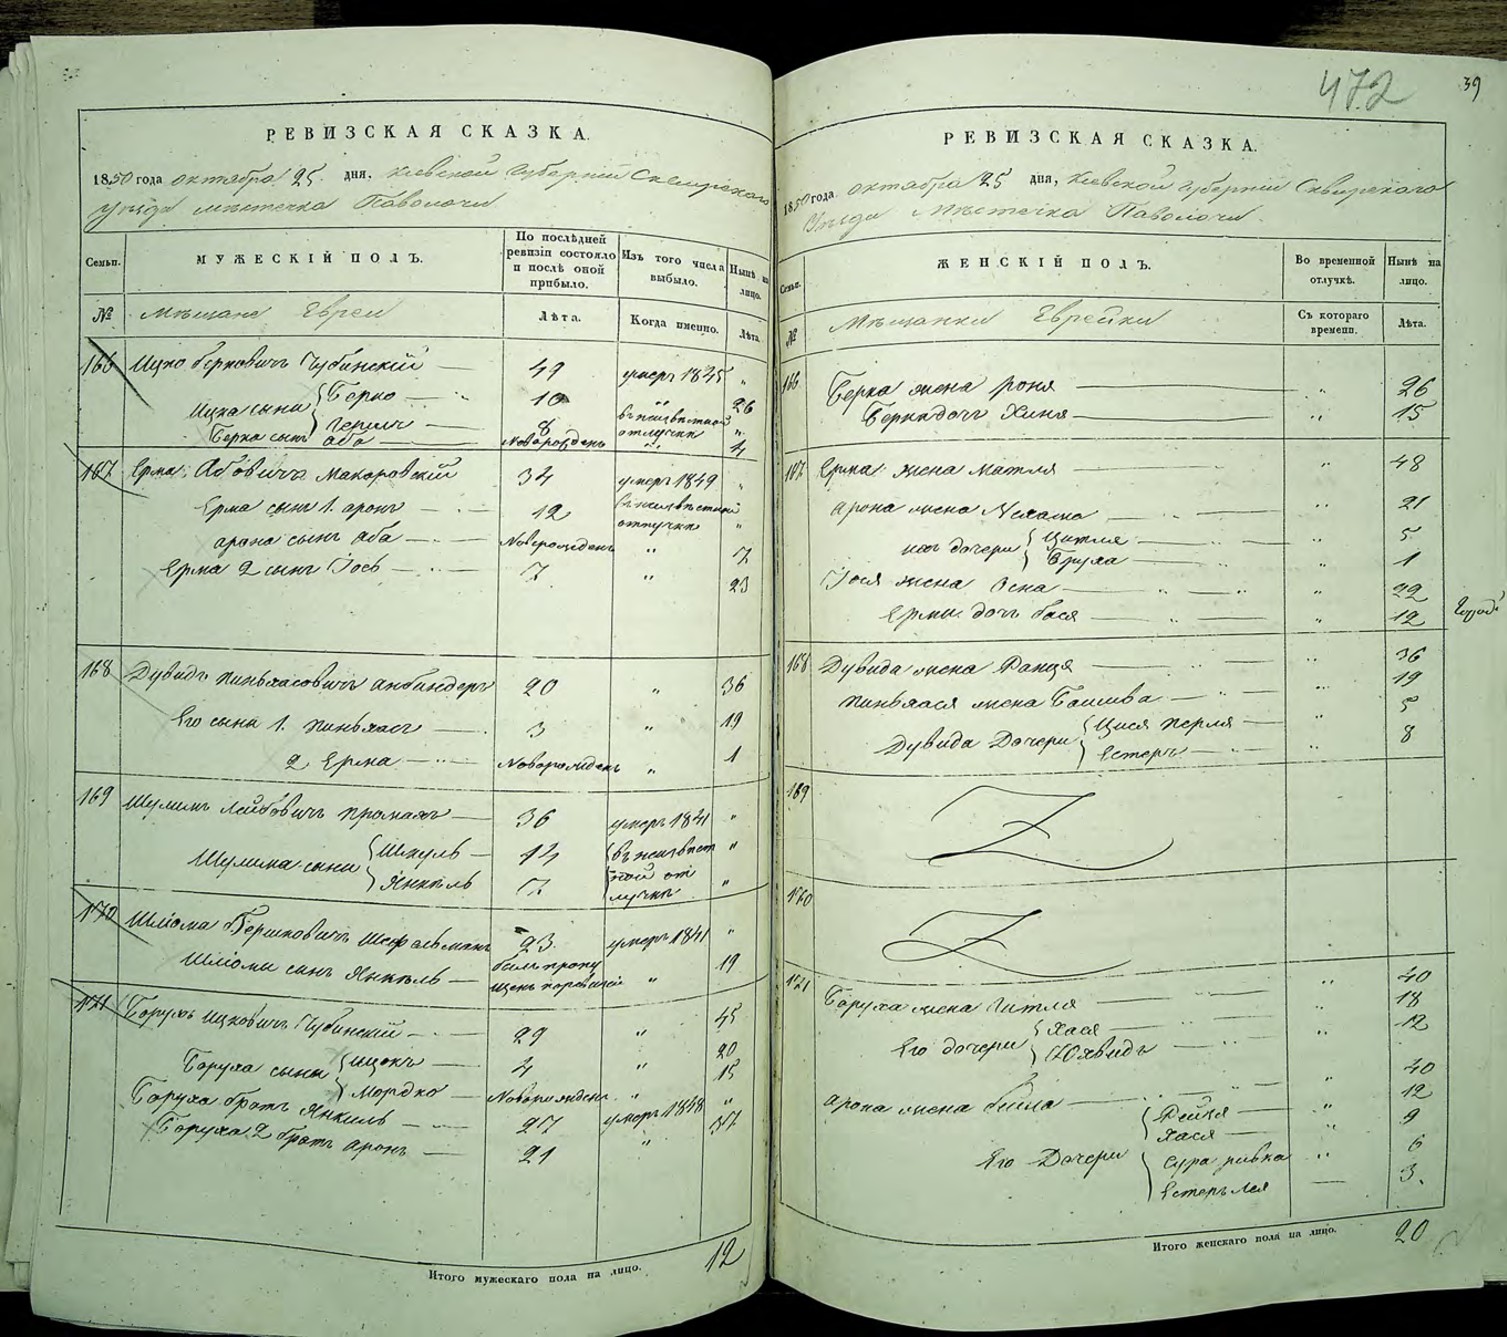 РЕВИЗСКАЯ СКАЗКА.
1850 года октября 25 дня, Киевской Губернии Сквирского
Уезда местечка Паволочи
Семьи.
МУЖЕСКІЙ ПОЛЪ.
По послѣдней ревизіи состояло и послѣ оной прибыло.
Изъ того числа выбыло.
Нынѣ на лицо.
№
Мещане Евреи
Лѣта.
Когда именно.
Лѣта.
166 Ицко Берковичъ Чубинскій 49 умеръ 1845 "
Ицка сыны Берко 10 " 26
Гершъ 8 въ неизвѣстной отлучке "
Берка сынъ Аба Новорожденъ " 4
167 Ерма Абовичъ Макаровскій 34 умеръ 1849 "
Ерма сынъ 1. Аронъ 12 въ неизвѣстной отлучке "
Арона сынъ Аба Новорожденъ " 7
Ерма 2 сынъ Іось 7 " 23
168 Дувидъ Пинхасовичъ 20 " 36
Его сына 1. Пинхасъ 3 " 19
2 Ерма Новорожденъ " 1
169 Шулимъ Лейбовичъ 36 умеръ 1841 "
Шулима сыни Шмуль 14 въ неизвѣстной отлучкѣ "
Янкель 7 "
170 Шліома Бершковичъ 23 умеръ 1841 "
Шліомы сынъ Янкель былъ пропущенъ по ревизіи " 19
171 Борухъ Ицковичъ Чубинскій 29 " 45
Боруха сыны Ицокъ 4 " 20
Мордко Новорожденъ " 15
Боруха братъ Янкель 27 умеръ 1848 "
Боруха 2 братъ Аронъ 21 " 37
Итого мужескаго пола на лицо. 12
472
39
РЕВИЗСКАЯ СКАЗКА.
1850 года октября 25 дня, Киевской Губернии Сквирского
Уезда Местечка Паволочи
Семьи.
ЖЕНСКІЙ ПОЛЪ.
Во временной отлучкѣ.
Нынѣ на лицо.
№
Мещанки Еврейки
Съ котораго времени.
Лѣта.
166 Берка жена Роня " 26
Берка дочь Хиня " 15
167 Ерма жена Матля " 48
Арона жена Нехама " 21
дочери Цитля " 5
Бруха " 1
Іося жена Осна " 22
Ерми дочь Бася " 12
168 Дувида жена Ранця " 36
Пинхаса жена Башива " 19
Дувида Дочери Цися Перля " 5
Естеръ " 8
169
170
171 Боруха жена Гитля " 40
Его дочери Хася " 18
Юхвидъ " 12
Арона жена Бейла 40
Его Дочери Рейзя " 12
Хася " 9
Сура Ривка " 6
Естеръ Лея 3.
Итого женскаго пола на лицо. 20